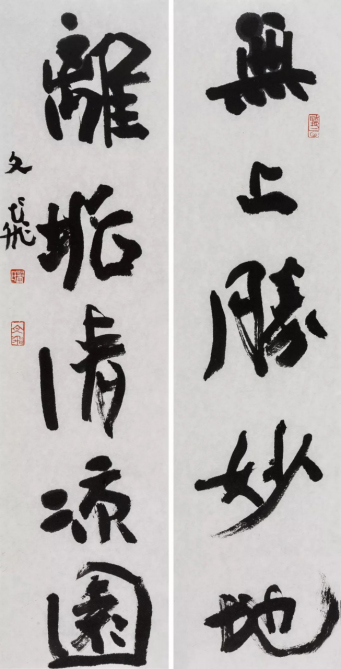 無上勝妙地
離垢清涼園
文飛